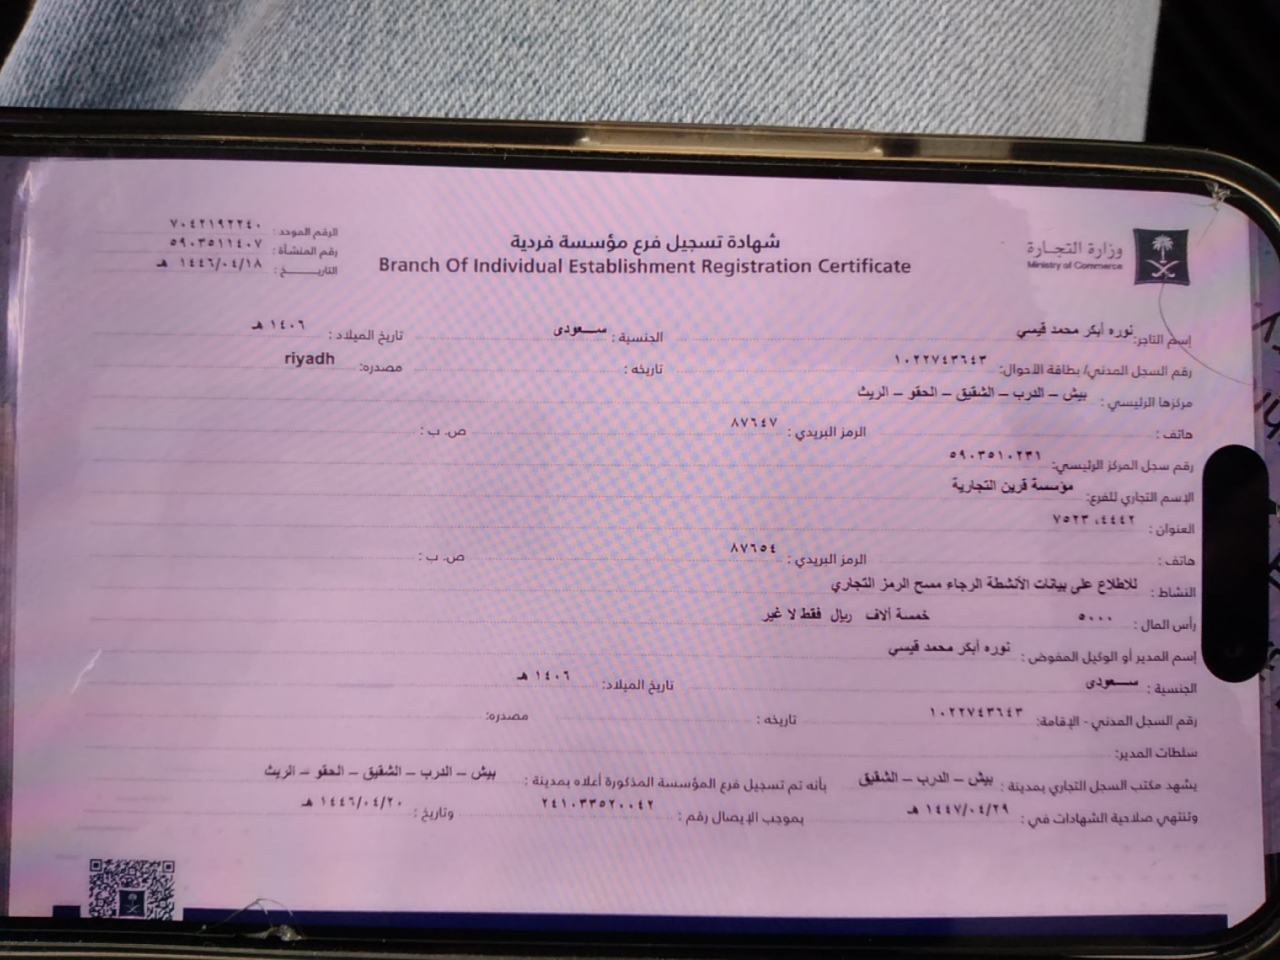 وزارة التجارة
Ministry of Commerce
شهادة تسجيل فرع مؤسسة فردية
Branch Of Individual Establishment Registration Certificate
الرقم الموحد : ٧٠٤٢١٩٢٢٤٠
رقم المنشأة : ٥٩٠٣٥١١٤٠٧
التاريــــخ : ١٤٤٦/٠٤/١٨ هـ
إسم التاجر: نوره أبكر محمد قيسي الجنسية : ســـعودى تاريخ الميلاد : ١٤٠٦ هـ
رقم السجل المدني/ بطاقة الأحوال: ١٠٢٢٧٤٣٦٤٣ تاريخه : مصدره: riyadh
مركزها الرئيسي : بيش – الدرب – الشقيق – الحقو – الريث
هاتف : الرمز البريدي : ٨٧٦٤٧ ص. ب :
رقم سجل المركز الرئيسي: ٥٩٠٣٥١٠٢٣١
الإسم التجاري للفرع: مؤسسة قرين التجارية
العنوان : ٧٥٢٣ ،٤٤٤٢
هاتف : الرمز البريدي : ٨٧٦٥٤ ص. ب :
النشاط : للاطلاع على بيانات الأنشطة الرجاء مسح الرمز التجاري
رأس المال : ٥٠٠٠ خمسة ألاف ريال فقط لا غير
إسم المدير أو الوكيل المفوض : نوره أبكر محمد قيسي
الجنسية : ســـعودى تاريخ الميلاد: ١٤٠٦ هـ
رقم السجل المدني - الإقامة: ١٠٢٢٧٤٣٦٤٣ تاريخه : مصدره:
سلطات المدير:
يشهد مكتب السجل التجاري بمدينة : بيش – الدرب – الشقيق بأنه تم تسجيل فرع المؤسسة المذكورة أعلاه بمدينة : بيش – الدرب – الشقيق – الحقو – الريث
وتنتهي صلاحية الشهادات في : ١٤٤٧/٠٤/٢٩ هـ بموجب الإيصال رقم : ٢٤١٠٣٣٥٢٠٠٤٢ وتاريخ : ١٤٤٦/٠٤/٢٠ هـ